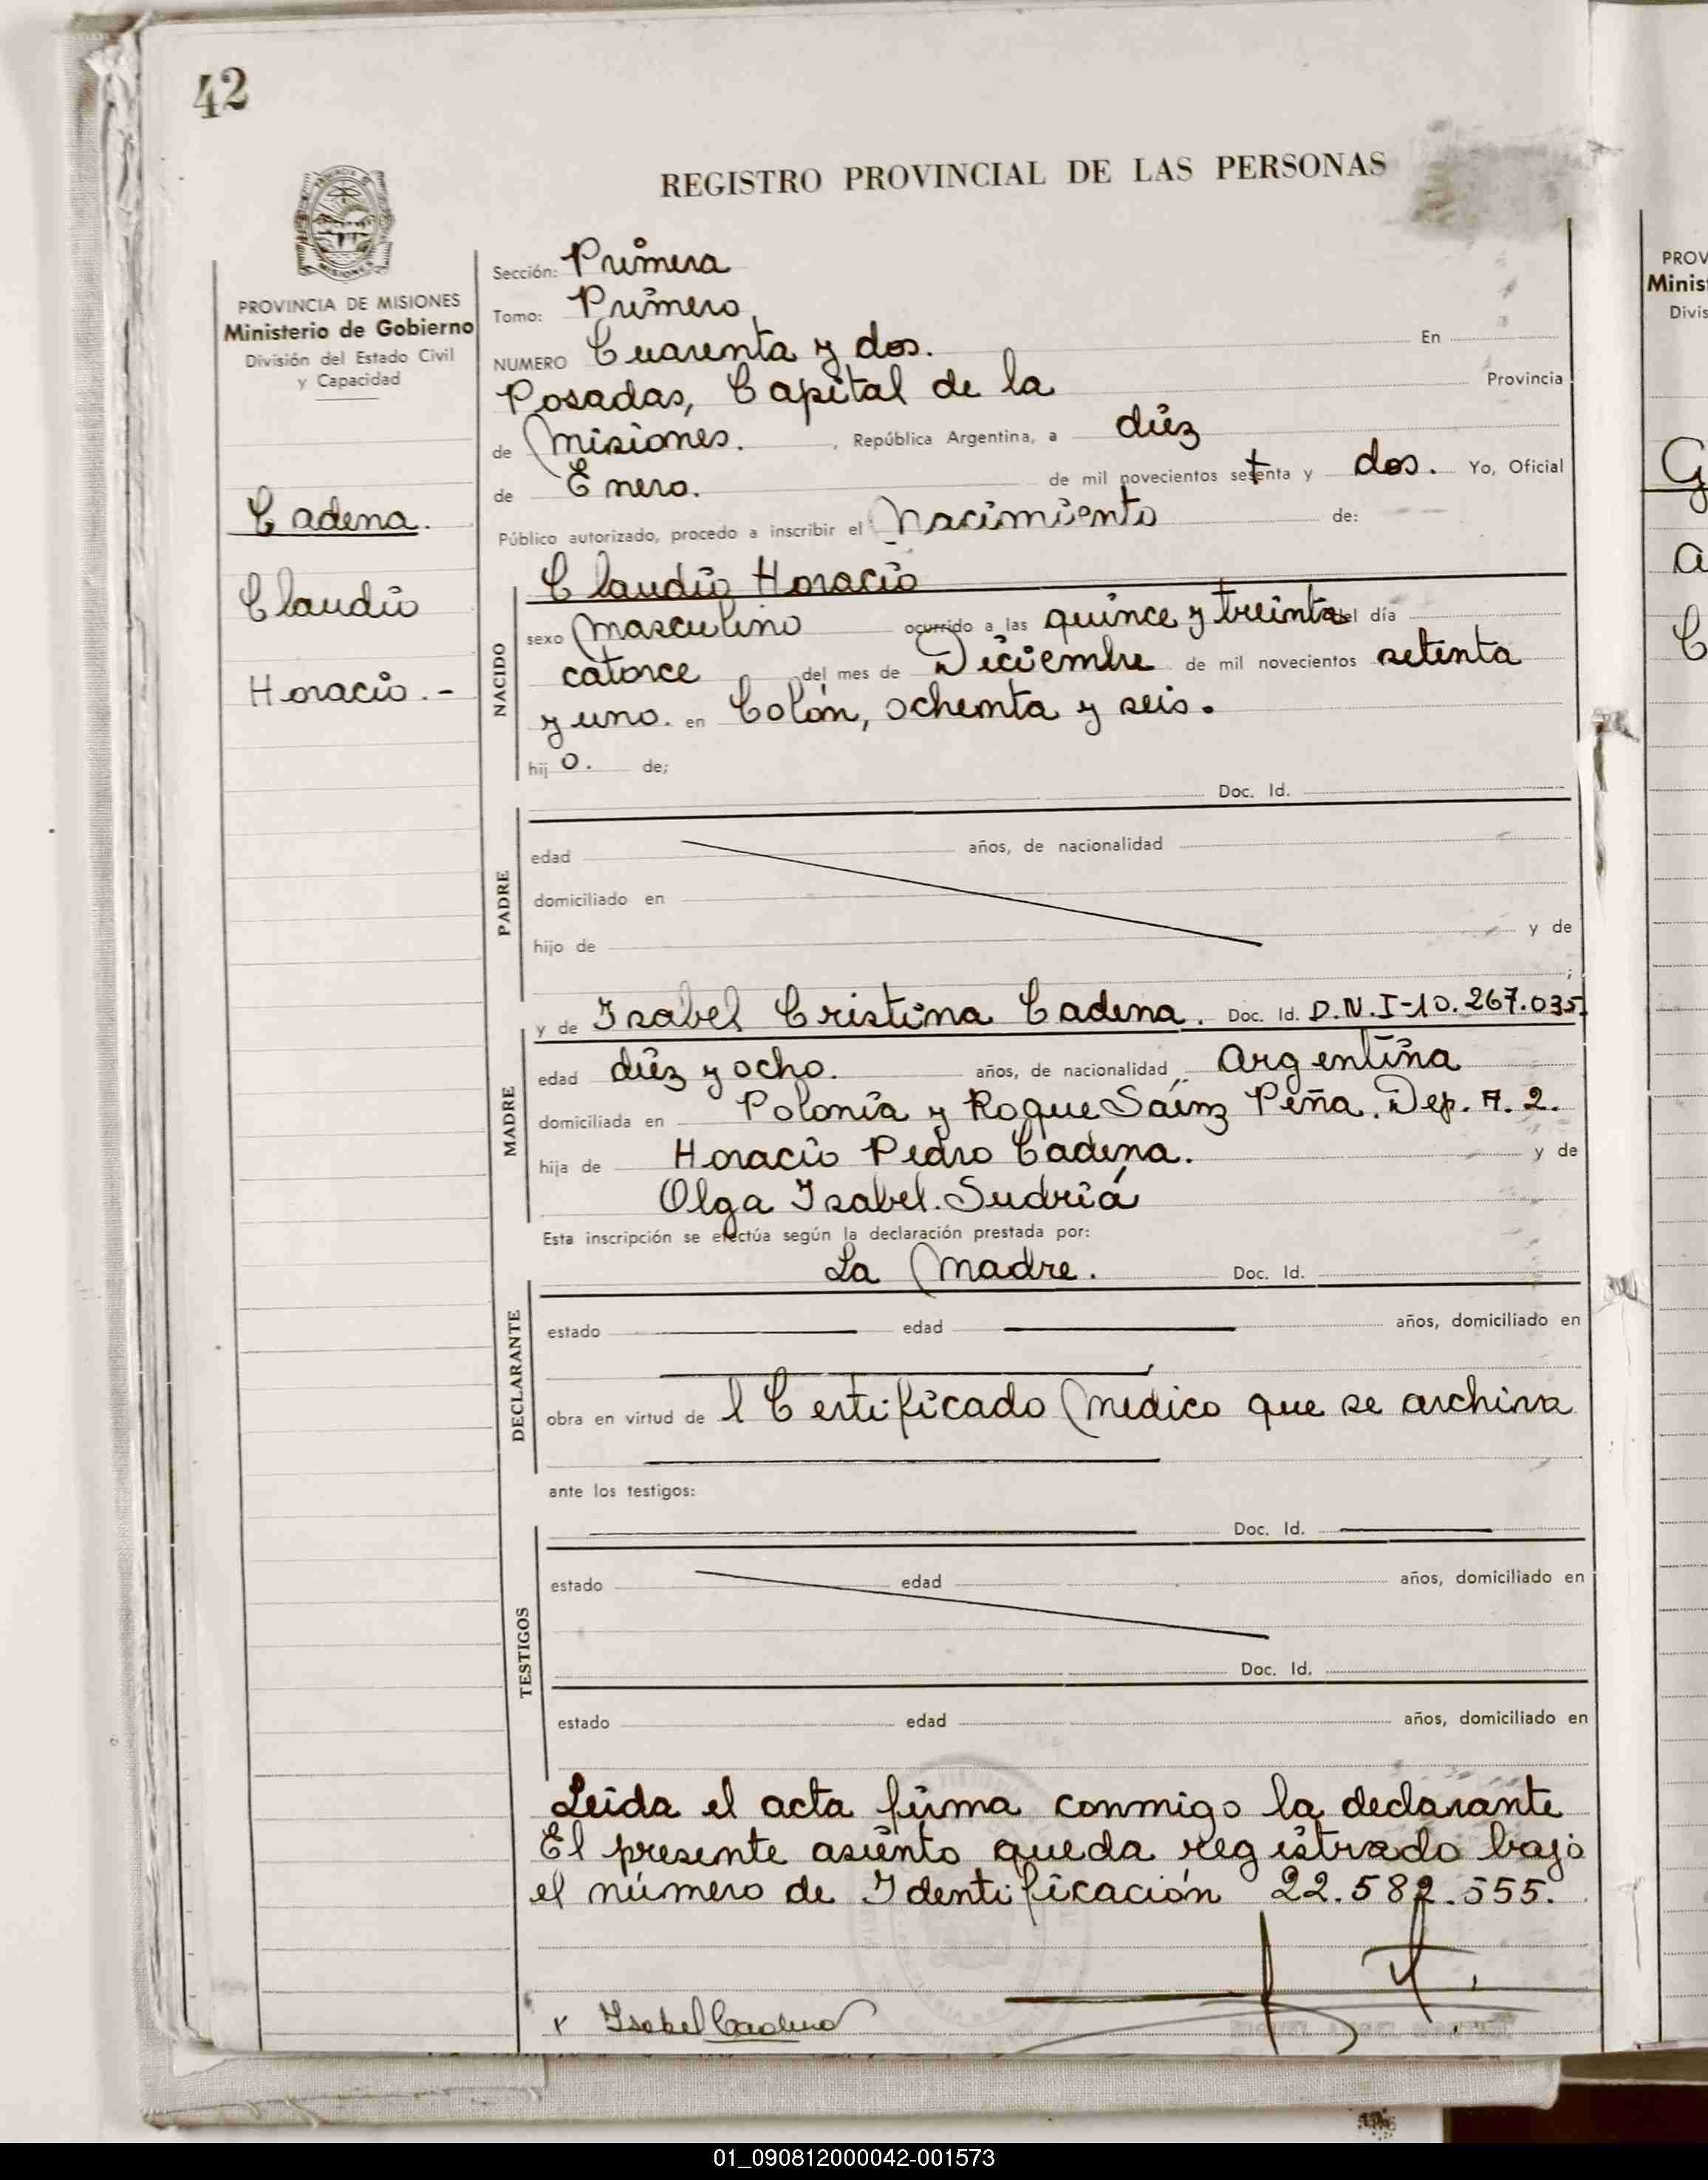 42
REGISTRO PROVINCIAL DE LAS PERSONAS
PROVINCIA DE MISIONES
Ministerio de Gobierno
División del Estado Civil
y Capacidad
Cadena.
Claudio
Horacio.-
Sección: Primera
Tomo: Primero
NUMERO Cuarenta y dos. En
Posadas, Capital de la Provincia
de Misiones. , República Argentina, a diéz
de Enero. de mil novecientos setenta y dos. Yo, Oficial
Público autorizado, procedo a inscribir el Nacimiento de:
NACIDO
Claudio Horacio
sexo Masculino ocurrido a las quince y treinta del día
catorce del mes de Diciembre de mil novecientos setenta
y uno. en Colón, ochenta y seis.
hij o. de;
PADRE
Doc. Id.
edad años, de nacionalidad
domiciliado en
hijo de y de
;
MADRE
y de Isabel Cristina Cadena. Doc. Id. D.N.I-10.267.035.
edad diéz y ocho. años, de nacionalidad Argentina
domiciliada en Polonia y Roque Sáinz Peña. Dep. A. 2.
hija de Horacio Pedro Cadena. y de
Olga Isabel. Sudriá
Esta inscripción se efectúa según la declaración prestada por:
DECLARANTE
La Madre. Doc. Id.
estado edad años, domiciliado en
obra en virtud de l Certificado Medico que se archiva
ante los testigos:
TESTIGOS
Doc. Id.
estado edad años, domiciliado en
Doc. Id.
estado edad años, domiciliado en
Leida el acta firma conmigo la declarante
El presente asiento queda registrado bajo
el número de Identificación 22.582.555.
x Isabel Cadena
PROV
Minis
Divis
G
a
C
01_090812000042-001573